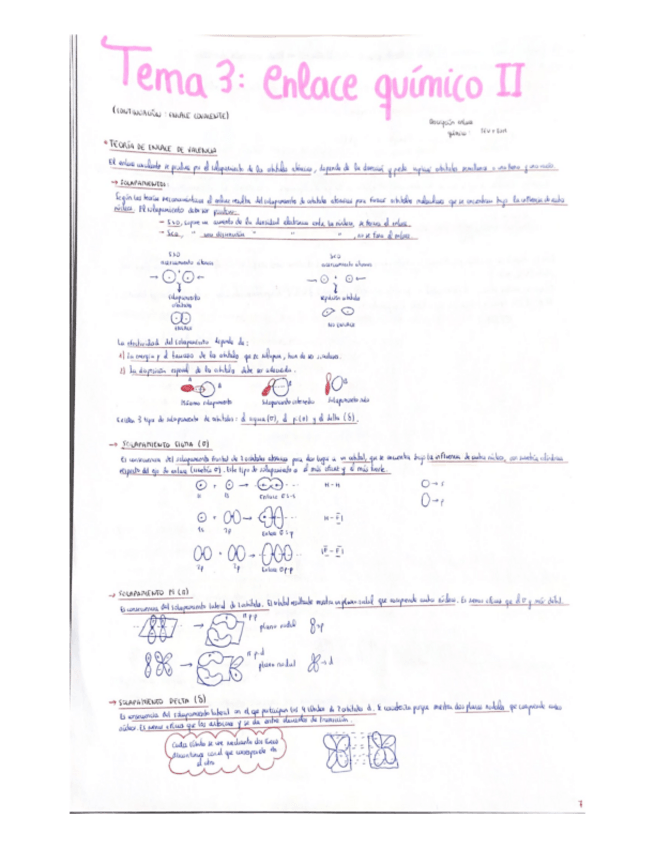 Tema 3: Enlace químico II
(CONTINUACIÓN: ENLACE COVALENTE)
Descripción enlace
* TEORÍA DE ENLACE DE VALENCIA
El enlace covalente se produce por el solapamiento de los orbitales atómicos, depende de la
→ SOLAPAMIENTO:
Según las teorías mecanocuánticas el enlace resulta del solapamiento de orbitales atómicos para formar orbitales moleculares que se encuentran bajo la influencia de ambos
núcleos. El solapamiento debe ser positivo:
- S>0, supone un aumento de la densidad electrónica entre los núcleos, se forma el enlace.
- S<0, " una disminución " " " , no se forma el enlace
S>0 S<0
acercamiento átomos acercamiento átomos
solapamiento
orbitales
ENLACE NO ENLACE
La efectividad del solapamiento depende de:
1) La energía y el tamaño de los orbitales que se solapan, han de ser similares.
2) La disposición espacial de los orbitales debe ser adecuada.
Máximo solapamiento Solapamiento intermedio Solapamiento nulo
Existen 3 tipos de solapamiento de orbitales: el sigma (σ), el pi (π) y el delta (δ).
→ SOLAPAMIENTO SIGMA (σ)
Es consecuencia del solapamiento frontal de 2 orbitales atómicos para dar lugar a un orbital, que se encuentra bajo la influencia de ambos núcleos, con simetría cilíndrica
respecto del eje de enlace (simetría σ). Este tipo de solapamiento es el más eficaz y el más fuerte.
Enlace σ s-s H - H
1s 2p Enlace σ s-p
2p 2p Enlace σ p-p
→ SOLAPAMIENTO PI (π)
Es consecuencia del solapamiento lateral de 2 orbitales. El orbital resultante muestra un plano nodal que comprende ambos núcleos. Es menos eficaz que el σ y más débil.
π p-p
plano nodal
π p-d
plano nodal
→ SOLAPAMIENTO DELTA (δ)
Es consecuencia del solapamiento lateral en el que participan los 4 lóbulos de 2 orbitales d. Se caracteriza porque muestra dos planos nodales que comprenden ambos
núcleos. Es menos eficaz que los anteriores y se da entre elementos de transición.
Cada lóbulo se une mediante dos líneas
discontinuas con el que corresponde de
el otro
7